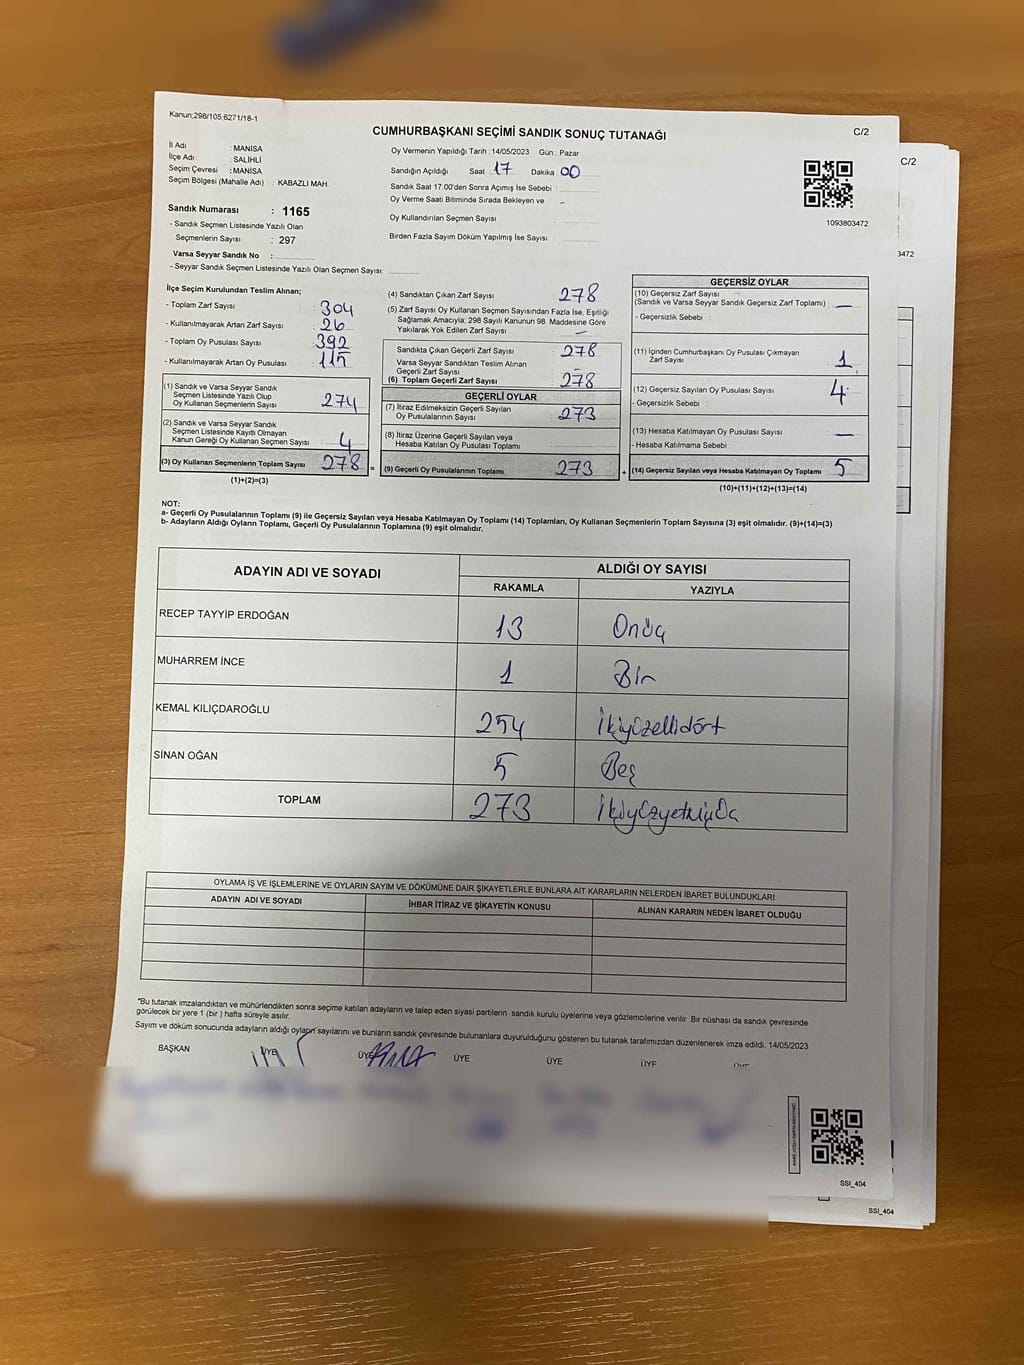 Kanun:298/105.6271/18-1
CUMHURBAŞKANI SEÇİMİ SANDIK SONUÇ TUTANAĞI
C/2
C/2
İl Adı : MANİSA
İlçe Adı : SALİHLİ
Seçim Çevresi : MANİSA
Seçim Bölgesi (Mahalle Adı) : KABAZLI MAH.
Sandık Numarası : 1165
- Sandık Seçmen Listesinde Yazılı Olan
Seçmenlerin Sayısı : 297
Varsa Seyyar Sandık No :
- Seyyar Sandık Seçmen Listesinde Yazılı Olan Seçmen Sayısı:
Oy Vermenin Yapıldığı Tarih :14/05/2023 Gün : Pazar
Sandığın Açıldığı Saat 17 Dakika 00
Sandık Saat 17.00'den Sonra Açımış İse Sebebi :
Oy Verme Saati Bitiminde Sırada Bekleyen ve -
Oy Kullandırılan Seçmen Sayısı
Birden Fazla Sayım Döküm Yapılmış İse Sayısı :
1093803472
3472
İlçe Seçim Kurulundan Teslim Alınan;
- Toplam Zarf Sayısı : 304
- Kullanılmayarak Artan Zarf Sayısı : 26
- Toplam Oy Pusulası Sayısı : 392
- Kullanılmayarak Artan Oy Pusulası : 115
(1) Sandık ve Varsa Seyyar Sandık
Seçmen Listesinde Yazılı Olup
Oy Kullanan Seçmenlerin Sayısı 274
(2) Sandık ve Varsa Seyyar Sandık
Seçmen Listesinde Kayıtlı Olmayan
Kanun Gereği Oy Kullanan Seçmen Sayısı 4
(3) Oy Kullanan Seçmenlerin Toplam Sayısı 278 =
(1)+(2)=(3)
(4) Sandıktan Çıkan Zarf Sayısı 278
(5) Zarf Sayısı Oy Kullanan Seçmen Sayısından Fazla İse, Eşitliği
Sağlamak Amacıyla; 298 Sayılı Kanunun 98. Maddesine Göre
Yakılarak Yok Edilen Zarf Sayısı -
Sandıkta Çıkan Geçerli Zarf Sayısı 278
Varsa Seyyar Sandıktan Teslim Alınan
Geçerli Zarf Sayısı -
(6) Toplam Geçerli Zarf Sayısı 278
GEÇERLİ OYLAR
(7) İtiraz Edilmeksizin Geçerli Sayılan
Oy Pusulalarının Sayısı 273
(8) İtiraz Üzerine Geçerli Sayılan veya
Hesaba Katılan Oy Pusulası Toplamı
(9) Geçerli Oy Pusulalarının Toplamı 273 +
GEÇERSİZ OYLAR
(10) Geçersiz Zarf Sayısı
(Sandık ve Varsa Seyyar Sandık Geçersiz Zarf Toplamı) —
- Geçersizlik Sebebi :
(11) İçinden Cumhurbaşkanı Oy Pusulası Çıkmayan
Zarf Sayısı 1
(12) Geçersiz Sayılan Oy Pusulası Sayısı 4
- Geçersizlik Sebebi :
(13) Hesaba Katılmayan Oy Pusulası Sayısı —
- Hesaba Katılmama Sebebi :
(14) Geçersiz Sayılan veya Hesaba Katılmayan Oy Toplamı 5
(10)+(11)+(12)+(13)=(14)
NOT:
a- Geçerli Oy Pusulalarının Toplamı (9) ile Geçersiz Sayılan veya Hesaba Katılmayan Oy Toplamı (14) Toplamları, Oy Kullanan Seçmenlerin Toplam Sayısına (3) eşit olmalıdır. (9)+(14)=(3)
b- Adayların Aldığı Oyların Toplamı, Geçerli Oy Pusulalarının Toplamına (9) eşit olmalıdır.
ADAYIN ADI VE SOYADI
ALDIĞI OY SAYISI
RAKAMLA YAZIYLA
RECEP TAYYİP ERDOĞAN 13 Onüç
MUHARREM İNCE 1 Bir
KEMAL KILIÇDAROĞLU 254 İkiyüzellidört
SİNAN OĞAN 5 Beş
TOPLAM 273 İkiyüzyetmişüç
OYLAMA İŞ VE İŞLEMLERİNE VE OYLARIN SAYIM VE DÖKÜMÜNE DAİR ŞİKAYETLERLE BUNLARA AİT KARARLARIN NELERDEN İBARET BULUNDUKLARI
ADAYIN ADI VE SOYADI İHBAR İTİRAZ VE ŞİKAYETİN KONUSU ALINAN KARARIN NEDEN İBARET OLDUĞU
*Bu tutanak imzalandıktan ve mühürlendikten sonra seçime katılan adayların ve talep eden siyasi partilerin sandık kurulu üyelerine veya gözlemcilerine verilir. Bir nüshası da sandık çevresinde
görülecek bir yere 1 (bir ) hafta süreyle asılır.
Sayım ve döküm sonucunda adayların aldığı oyların sayılarını ve bunların sandık çevresinde bulunanlara duyurulduğunu gösteren bu tutanak tarafımızdan düzenlenerek imza edildi. 14/05/2023
BAŞKAN ÜYE ÜYE ÜYE ÜYE ÜYE
SSI_404
SSI_404